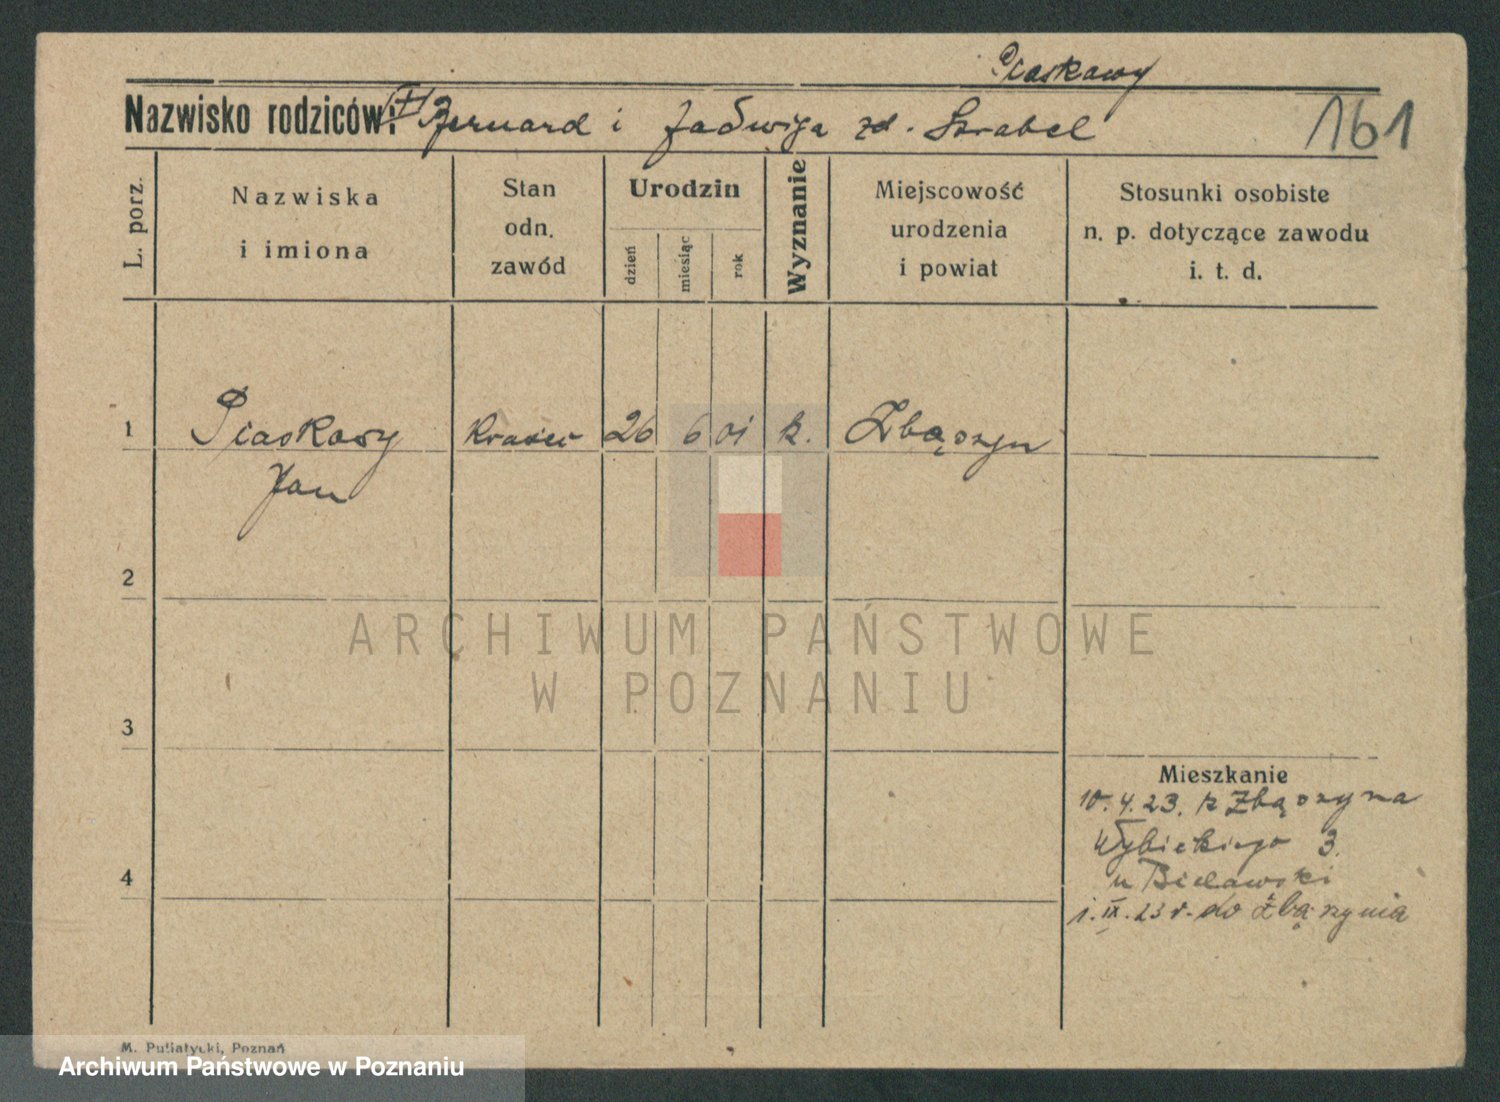 Piaskowy
Nazwisko rodziców: (+) Bernard i Jadwiga zd. Skrabel
161
L. porz.
Nazwiska
i imiona
Stan
odn.
zawód
Urodzin
dzień
miesiąc
rok
Wyznanie
Miejscowość
urodzenia
i powiat
Stosunki osobiste
n. p. dotyczące zawodu
i. t. d.
1 Piaskowy krawiec 26 6 01 k. Zbąszyn
Jan
2
3
4
Mieszkanie
10.4.23. z Zbąszyna
Wybickiego 3.
u Bielawski
1.IX.23 r. do Zbąszynia
M. Putiatycki, Poznań
ARCHIWUM PAŃSTWOWE
W POZNANIU
Archiwum Państwowe w Poznaniu